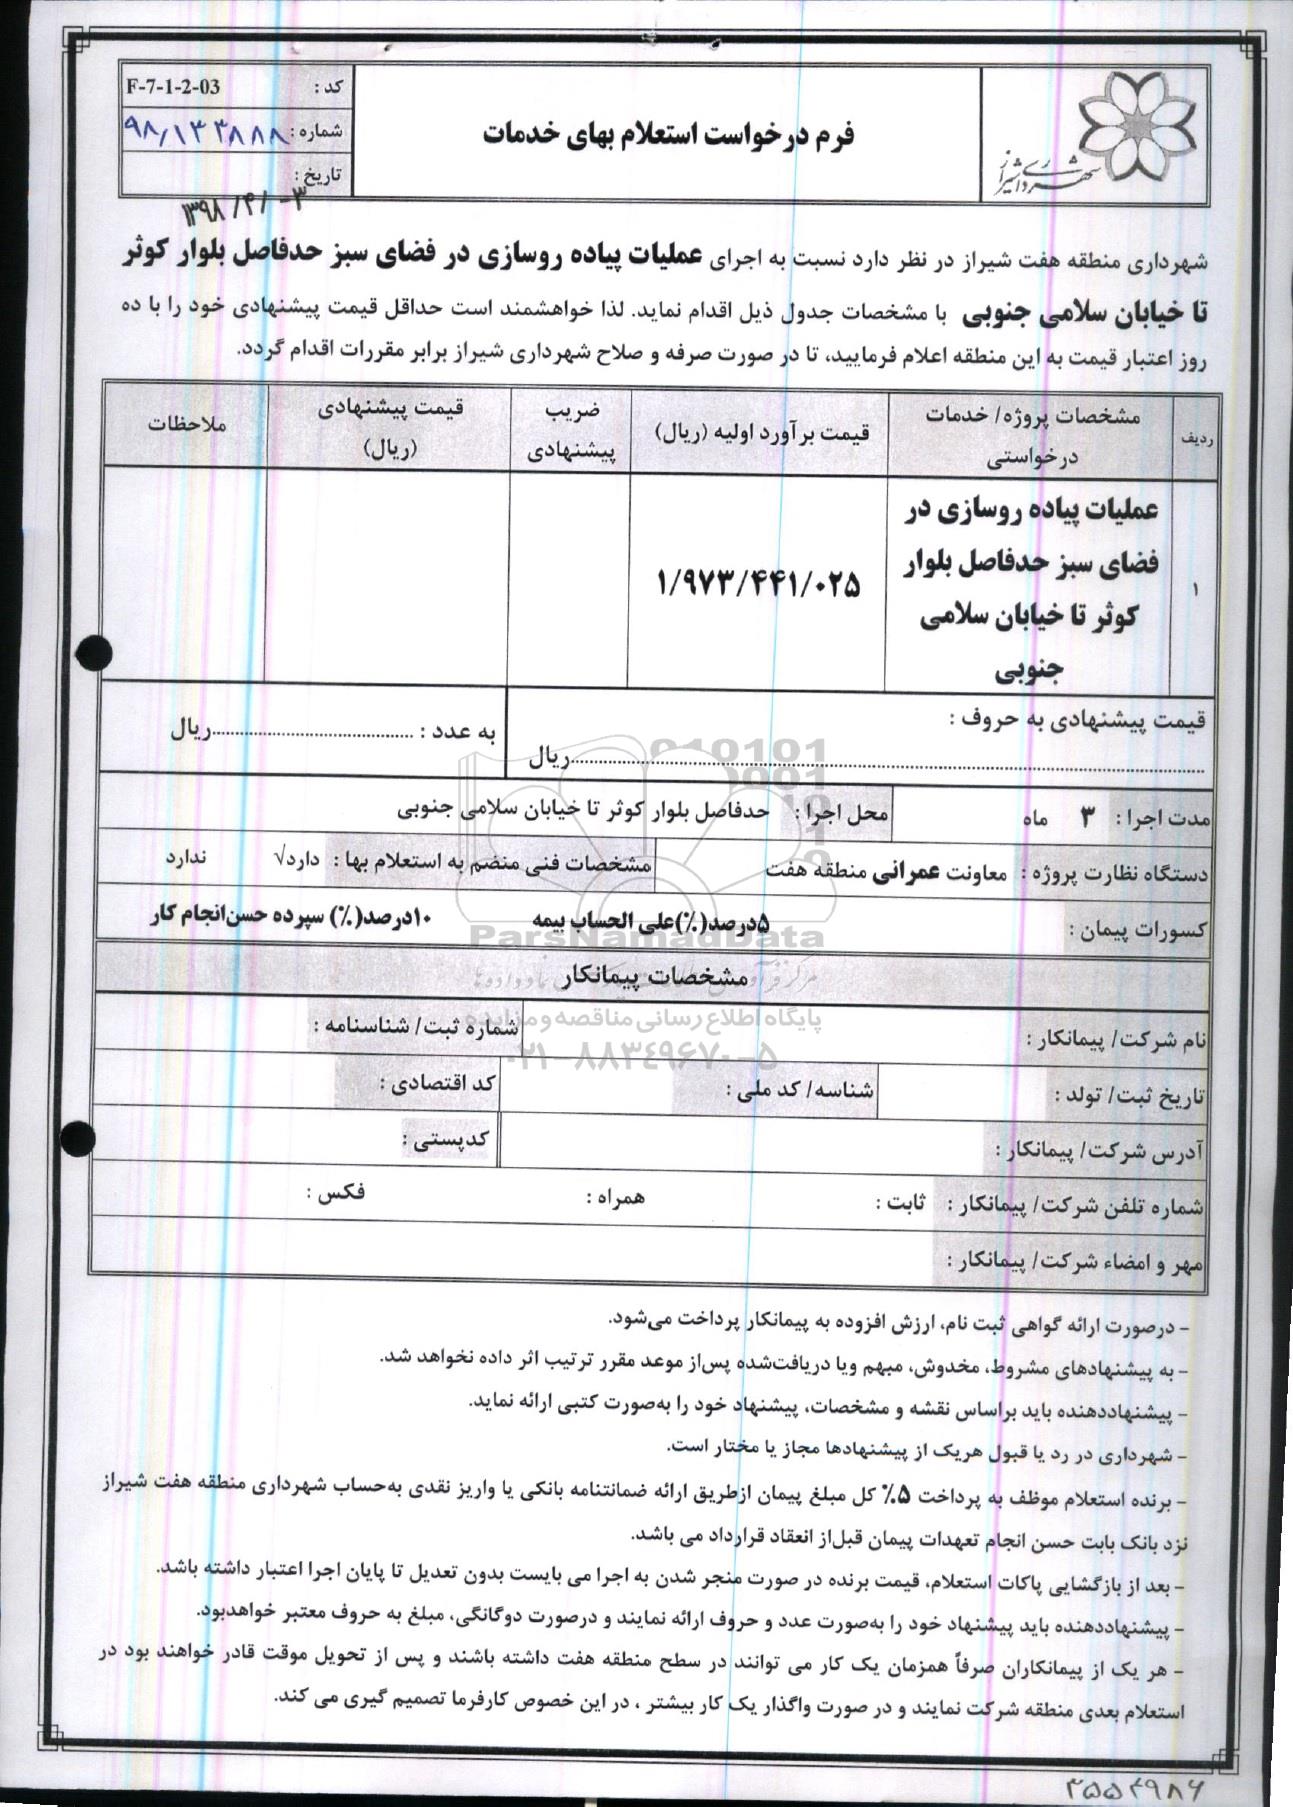 شهرداری شیراز
فرم درخواست استعلام بهای خدمات
کد : F-7-1-2-03
شماره : ۹۸/۱۳۳۸۸۸
تاریخ :
۱۳۹۸/۴/-۳
شهرداری منطقه هفت شیراز در نظر دارد نسبت به اجرای عملیات پیاده روسازی در فضای سبز حدفاصل بلوار کوثر
تا خیابان سلامی جنوبی با مشخصات جدول ذیل اقدام نماید. لذا خواهشمند است حداقل قیمت پیشنهادی خود را با ده
روز اعتبار قیمت به این منطقه اعلام فرمایید، تا در صورت صرفه و صلاح شهرداری شیراز برابر مقررات اقدام گردد.
ردیف
مشخصات پروژه/ خدمات
درخواستی
قیمت برآورد اولیه (ریال)
ضریب
پیشنهادی
قیمت پیشنهادی
(ریال)
ملاحظات
۱
عملیات پیاده روسازی در
فضای سبز حدفاصل بلوار
کوثر تا خیابان سلامی
جنوبی
۱/۹۷۳/۴۴۱/۰۲۵
قیمت پیشنهادی به حروف :
..........ریال
به عدد : ..........ریال
مدت اجرا : ۳ ماه
محل اجرا : حدفاصل بلوار کوثر تا خیابان سلامی جنوبی
دستگاه نظارت پروژه : معاونت عمرانی منطقه هفت
مشخصات فنی منضم به استعلام بها : دارد√ ندارد
کسورات پیمان : ۵درصد(٪)علی الحساب بیمه ۱۰درصد(٪) سپرده حسن‌انجام کار
ParsNamadData
مشخصات پیمانکار
پایگاه اطلاع رسانی مناقصه و مزایده
۰۲۱-۸۸۳۴۹۶۷۰-۵
نام شرکت/ پیمانکار :
شماره ثبت/ شناسنامه :
تاریخ ثبت/ تولد :
شناسه/ کد ملی :
کد اقتصادی :
آدرس شرکت/ پیمانکار :
کدپستی :
شماره تلفن شرکت/ پیمانکار : ثابت : همراه : فکس :
مهر و امضاء شرکت/ پیمانکار :
- درصورت ارائه گواهی ثبت نام، ارزش افزوده به پیمانکار پرداخت می‌شود.
- به پیشنهادهای مشروط، مخدوش، مبهم ویا دریافت‌شده پس‌از موعد مقرر ترتیب اثر داده نخواهد شد.
- پیشنهاددهنده باید براساس نقشه و مشخصات، پیشنهاد خود را به‌صورت کتبی ارائه نماید.
- شهرداری در رد یا قبول هریک از پیشنهادها مجاز یا مختار است.
- برنده استعلام موظف به پرداخت ۵٪ کل مبلغ پیمان ازطریق ارائه ضمانتنامه بانکی یا واریز نقدی به‌حساب شهرداری منطقه هفت شیراز
نزد بانک بابت حسن انجام تعهدات پیمان قبل‌از انعقاد قرارداد می باشد.
- بعد از بازگشایی پاکات استعلام، قیمت برنده در صورت منجر شدن به اجرا می بایست بدون تعدیل تا پایان اجرا اعتبار داشته باشد.
- پیشنهاددهنده باید پیشنهاد خود را به‌صورت عدد و حروف ارائه نمایند و درصورت دوگانگی، مبلغ به حروف معتبر خواهدبود.
- هر یک از پیمانکاران صرفاً همزمان یک کار می توانند در سطح منطقه هفت داشته باشند و پس از تحویل موقت قادر خواهند بود در
استعلام بعدی منطقه شرکت نمایند و در صورت واگذار یک کار بیشتر ، در این خصوص کارفرما تصمیم گیری می کند.
۳۵۵۴۹۸۶